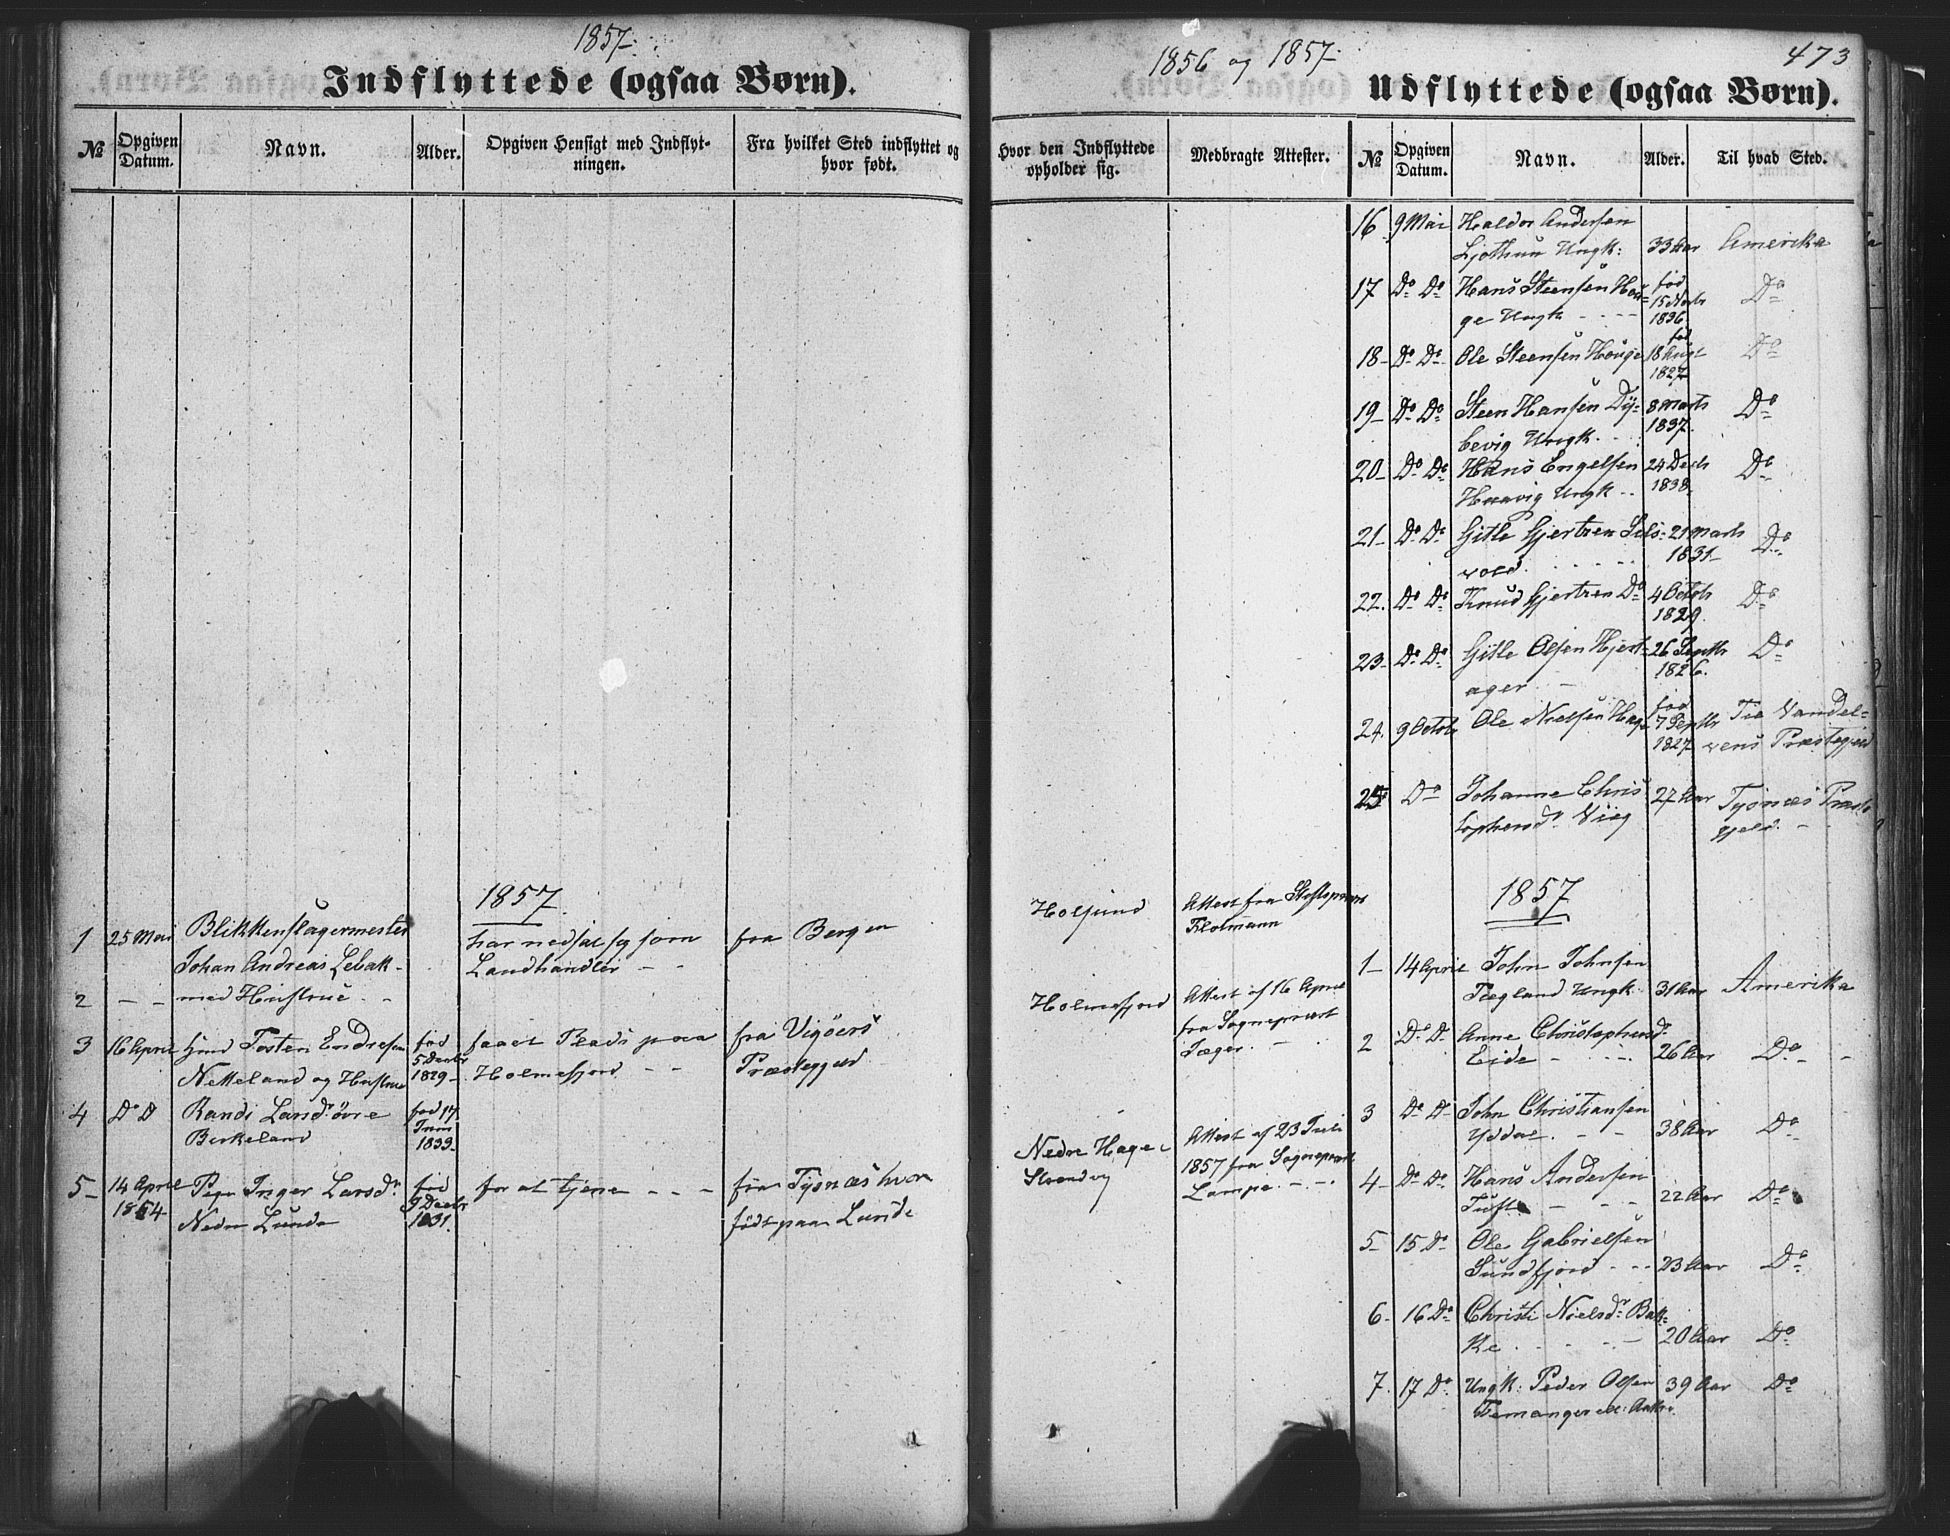 1857
Indflyttede (ogsaa Børn).
№
Opgiven Datum.
Navn.
Alder.
Opgiven Hensigt med Indflyt-
ningen.
Fra hvilket Sted indflyttet og
hvor født.
1857
1 25 Mai Blikkenslagermester har nedsat sig som fra Bergen
Johan Andreas Landhandler - -
2 - - med Hustrue - -
3 16 April Tosten Endresen fød 5 Decbr 1829 faaet Plads paa fra Vigøers
Netteland og Hustrue Holmefjord - - Præstegjeld
4 Do D Randi Larsdr øvre fød 17 Juni 1833
Birkeland
5 14 April Pige Inger Larsdr fød 9 Decbr 1831 for at tjene - - - fra Tysnæs hvor
1854 Nedre Lunde født paa Lunde
1856 og 1857
473
Udflyttede (ogsaa Børn).
Hvor den Indflyttede
opholder sig.
Medbragte Attester.
№
Opgiven Datum.
Navn.
Alder.
Til hvad Sted.
Holsund Attest fra Stiftsprovst
Holmefjord Attest af 16 April
fra Sognepræst
Jæger - -
Nedre Hage Attest af 23 Juli
Strandvig 1857 fra Sognepræst
Lampe - -
16 9 Mai Haldor Andersen
Ljothun Ungk: 33 Aar Amerika
17 Do Do Hans Steensen Hou- fød 15 1836 Do
ge Ungk - - -
18 Do Do Ole Steensen Houge fød 18 Augt 1827 Do
19 Do Do Steen Hansen Dy- 8 Marts 1837 Do
bevig Ungk.
20 Do Do Hans Engelsen 24 Decb 1838 Do
Haavig Ungk -
21 Do Do Gitle Gjertsen Sels- 21 Marts 1831 Do
vold
22 Do Do Knud Gjertsen Do 4 Octob 1829 Do
23 Do Do Gitle Olsen Hjert- 26 Septb 1826 Do
ager
24 9 Octob Ole Nielsen Hage fød 7 Septbr 1827 Til Vandel-
vens Præstegjeld
25 Do Johanne Chris 27 Aar Tysnæs Præste
tophersdr Viig gjeld -
1857
1 14 April John Johnsen
Tægland Ungk 31 Aar Amerika
2 Do D Anne Christophersdr
Eide - - 26 Aar Do
3 Do D John Christiansen
Yddal - - 38 Aar Do
4 Do D Hans Andersen
Tufte - - 22 Aar Do
5 15 Do Ole Gabrielsen
Sundfjord - - 23 Aar Do
6 16 Do Christi Nielsdr Bak-
ke - - 20 Aar Do
7 17 Do Ungk: Peder Olsen 39 Aar Do